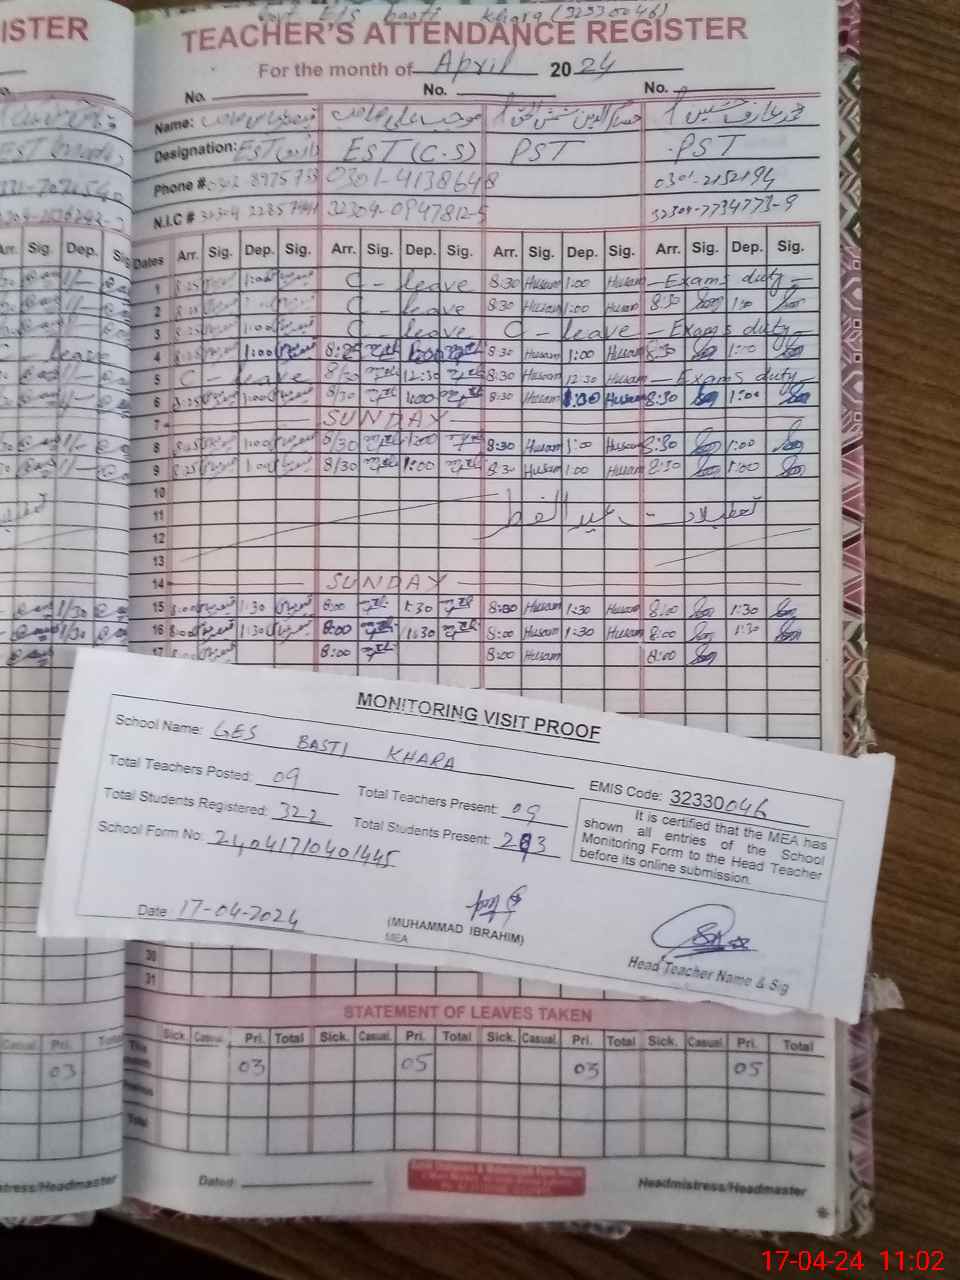 Govt E/S basti khara (32330046)
ISTER
TEACHER'S ATTENDANCE REGISTER
For the month of April 2024
No. No. No.
Name:
Designation: EST EST (C.S) PST PST
Phone # 0301-4138648 0301-2152194
N.I.C # 32304-0947812-5 32304-7734773-9
Arr. Sig. Dep. Sig. Dates Arr. Sig. Dep. Sig. Arr. Sig. Dep. Sig. Arr. Sig. Dep. Sig. Arr. Sig. Dep. Sig.
1 8:25 1:00 C - leave 8:30 Husam 1:00 Husam - Exams duty -
2 C - leave 8:30 Husam 1:00 Husam 8:30 1:00
3 8:25 1:00 C - leave C - leave - Exams duty -
leave 4 8:25 1:00 8:25 1:00 8:30 Husam 1:00 Husam 8:30 1:00
5 C - leave 8/30 12:30 8:30 Husam 12:30 Husam - Exams duty -
6 8:25 1:00 8/30 1:00 8:30 Husam 1:00 Husam 8:30 1:00
7 SUNDAY
8 8:25 1:00 8/30 1:00 8:30 Husam 1:00 Husam 8:30 1:00
9 8:25 1:00 8/30 1:00 8:30 Husam 1:00 Husam 8:30 1:00
10
11 تعطیلات - عید الفطر
12
13
14 SUNDAY
1/30 15 8:00 1:30 8:00 1:30 8:00 Husam 1:30 Husam 8:00 1:30
1/30 16 8:00 1:30 8:00 1:30 8:00 Husam 1:30 Husam 8:00 1:30
17 8:00 8:00 8:00 Husam 8:00
MONITORING VISIT PROOF
School Name: GES BASTI KHARA
EMIS Code: 32330046
Total Teachers Posted: 09 Total Teachers Present: 09
Total Students Registered: 322 Total Students Present: 293
School Form No: 24041710401445
It is certified that the MEA has
shown all entries of the School
Monitoring Form to the Head Teacher
before its online submission.
Date: 17-04-2024
(MUHAMMAD IBRAHIM)
MEA
Head Teacher Name & Sig
30
31
STATEMENT OF LEAVES TAKEN
Casual Pri. Total Sick. Casual Pri. Total Sick. Casual. Pri. Total Sick. Casual. Pri. Total Sick. Casual. Pri. Total
03 This month 03 05 03 05
Previous
Total
Dated: Headmistress/Headmaster
stress/Headmaster
17-04-24 11:02